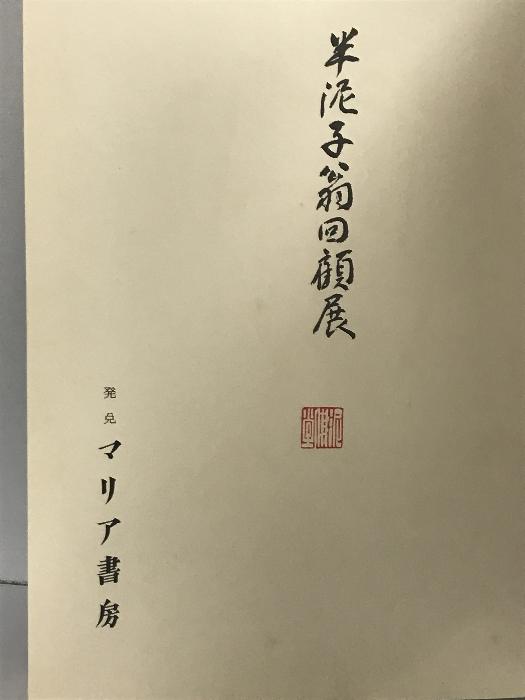 半泥子翁回顧展
泥仏堂
発兌
マリア書房